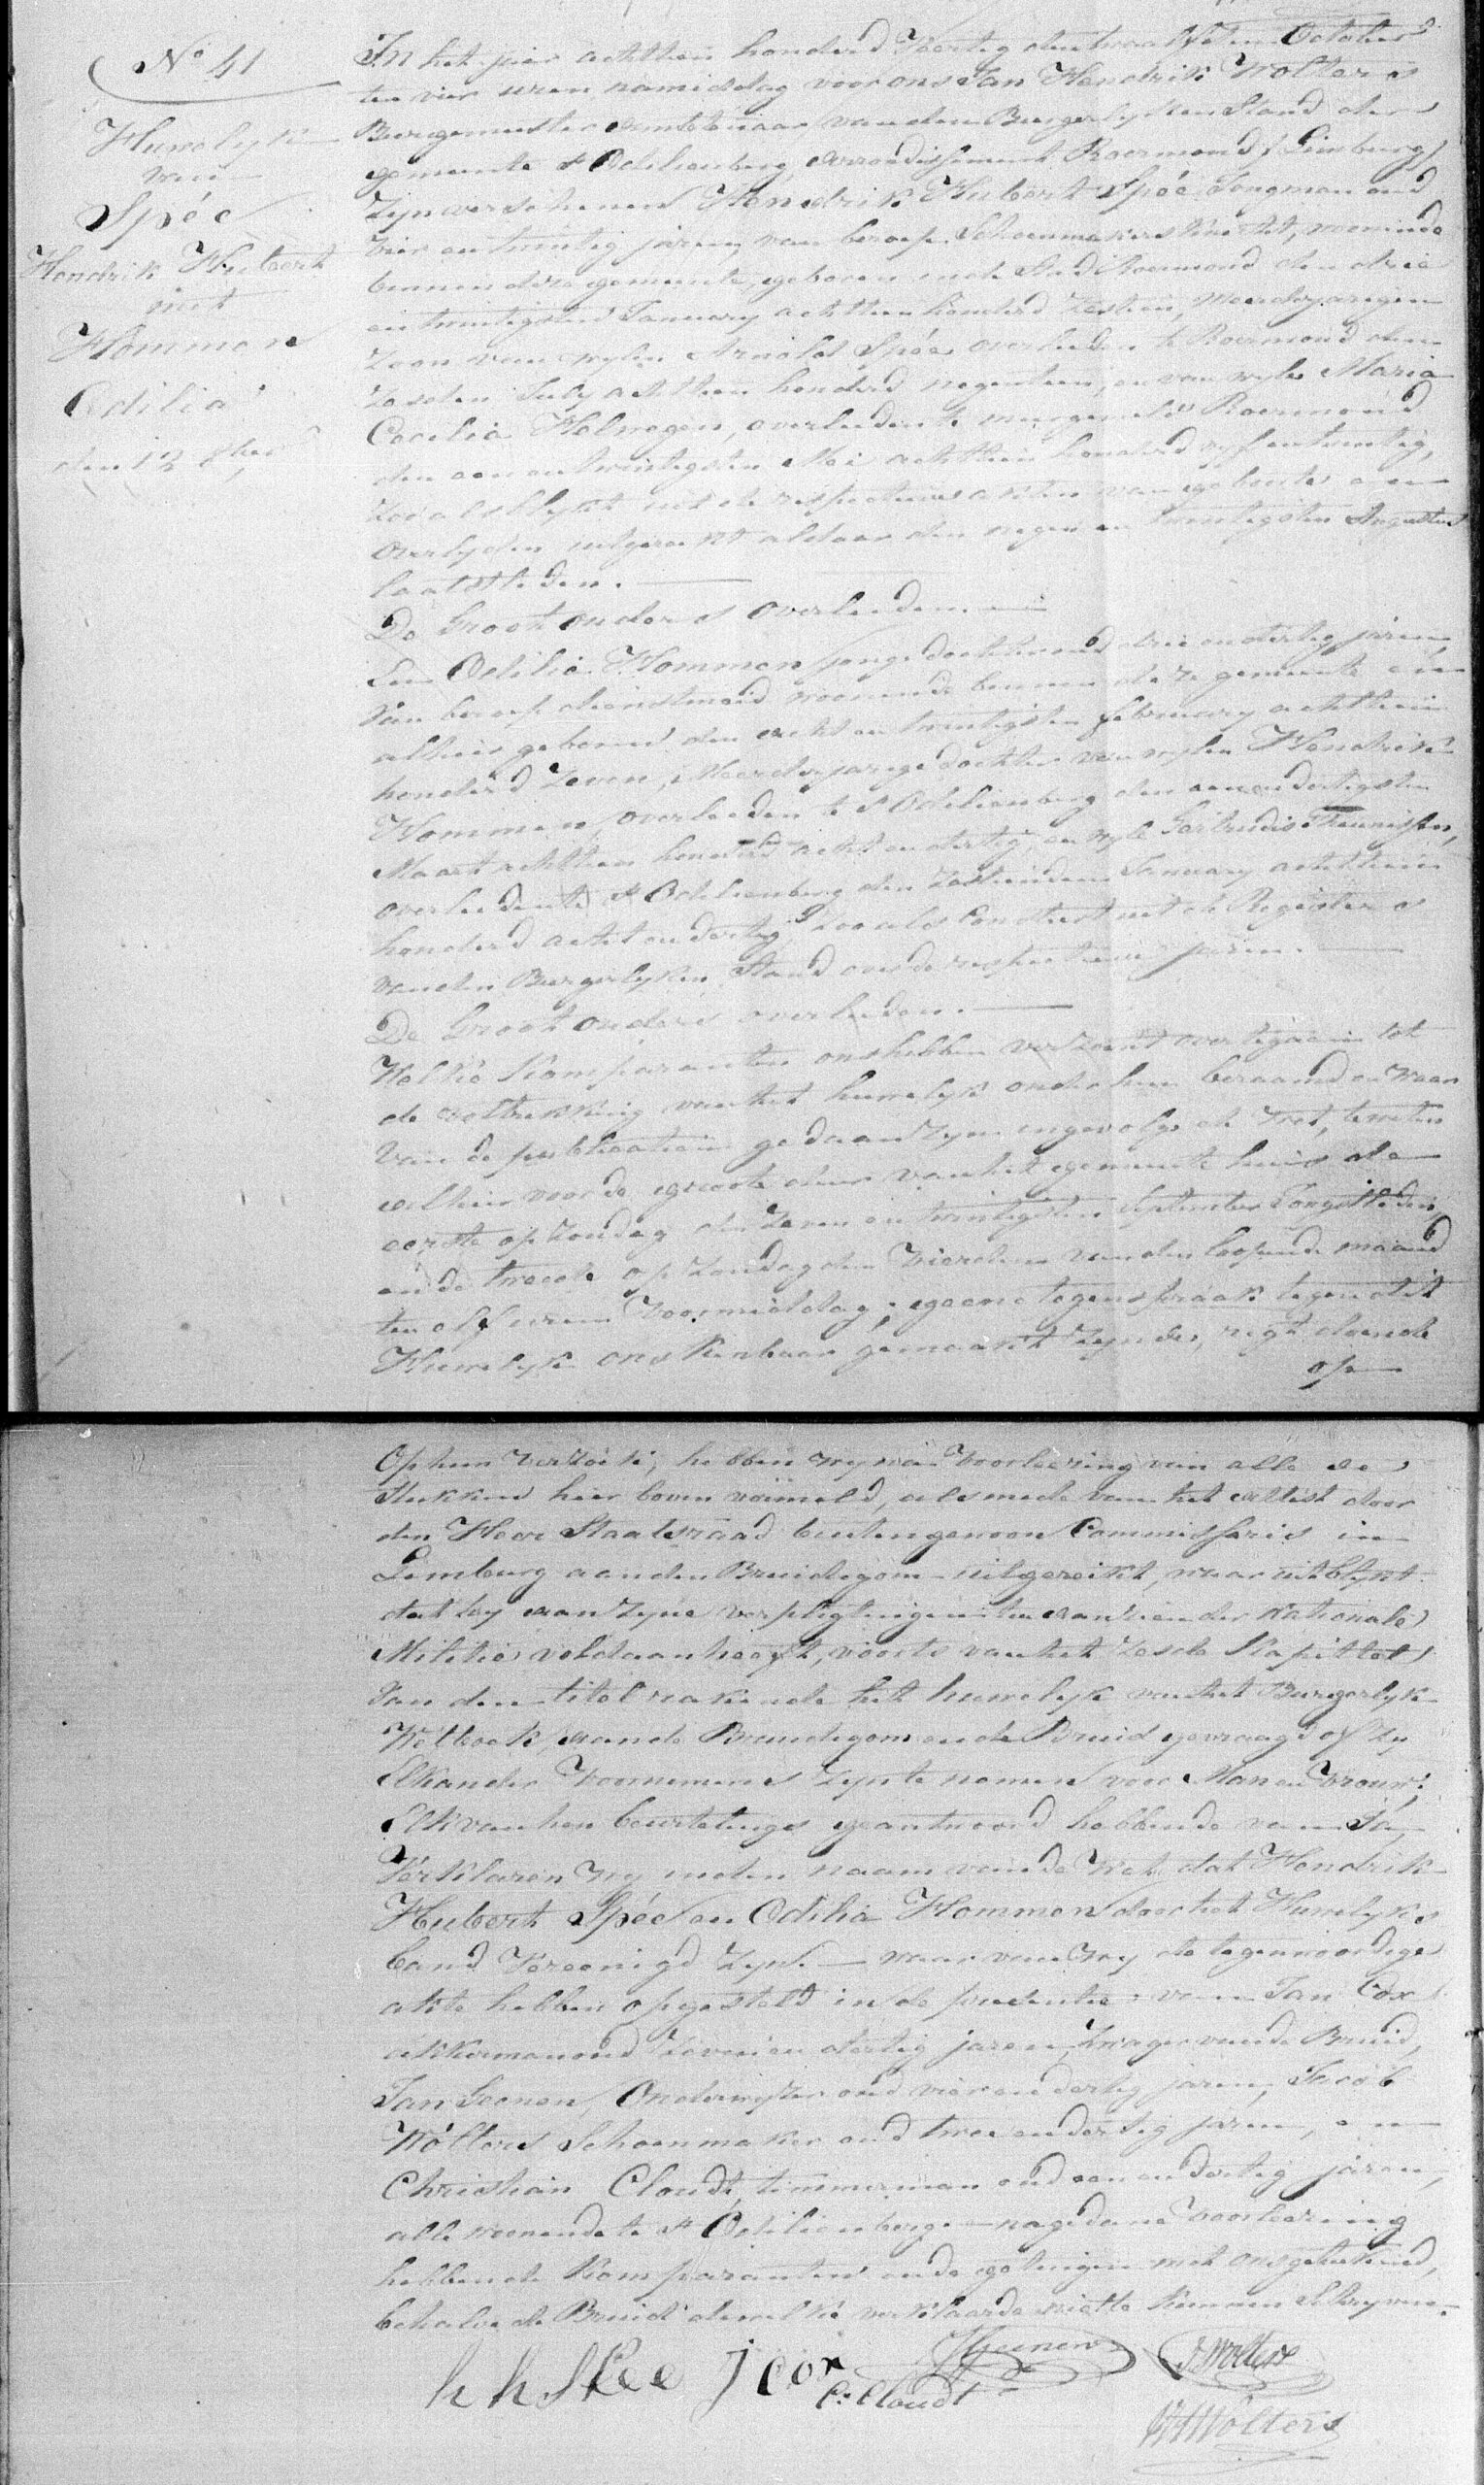 N° 41
Huwelyk
van
Spéé
Hendrik Hubert
met
Hommen
Odilia
den 12 8ber
In het jaer achttien honderd Veertig den twaalfden October
ten vier uren namiddag voor ons Jan Hendrik Wolters
Burgemeester Ambtenaar van den Burgerlyken Stand der
gemeente St Odilienberg, Arrondissement Roermond, Limburg,
Zyn verschenen Hendrik Hubert Spéé Jongman oud
vier en twintig jaren, van beroep Schoenmakersknecht, woonende
binnen deze gemeente, geboren in de Stad Roermond den drie
en twintigsten January achttien honderd Zestien, Meerderjarigen
Zoon van wylen Arnold Spéé overleden te Roermond den
Zesden July achttien honderd negentien, en van wyle Maria
Cecilia Helwegen, overleden te meergemeld Roermond
den een en twintigsten Mei achttien honderd vyf en twintig,
Zoo als blykt uit de respectieve akten van geboorte en
overlyden uitgereikt aldaar den negen en twintigsten Augustus
laatstleden.
De Grootouders overleden.
En Odilia Hommen jonge dochter oud drie en dertig jaren
Van beroep dienstmeid woonende binnen deze gemeente en
alhier geboren den acht en twintigsten february achttien
honderd Zeven, Meerderjarige dochter van wylen Hendrik
Hommen, overleden te St Odilienberg den een en dertigsten
Maart achttien honderd acht en dertig, en wyle Gertrudis Theunissen,
overleden te St Odilienberg den Zestienden January achttien
honderd acht en dertig, Zoo als Consteert uit de Registers
van den Burgerlyken Stand over de respectieve jaren.
De Grootouders overleden.
Welke Komparanten ons hebben verzocht over te gaan tot
de voltrekking van het huwelyk onder hun beraamd en waar
Van de publicatien gedaan Zyn ingevolge de Wet, te weten
alhier voor de groote deur van het gemeente huis de
eerste op Zondag den Zeven en twintigsten September Jongstleden,
en de tweede op Zondag den Vierden van den loopende maand
ten elf uren Voormiddag; geene tegenspraak tegen dit
Huwelyk ons kenbaar gemaakt Zynde, regt doende
op
Op hun Verzoek, hebben wy na Voorleezing van alle de
Stukken hier boven vermeld, alsmede van het attest door
den Heer Staatsraad buitengewoon Commissaris in
Limburg aan den Bruidegom uitgereikt, waar uit blykt
dat hy aan Zyne verpligtingen ten aanzien der nationale
Militie voldaan heeft, voorts van het Zesde Kapittel
Van den titel rakende het huwelyk van het Burgerlyk
Wetboek, aan de Bruidegom en de Bruid gevraagd of Zy
Elkander Voornemens Zyn te nemen voor Man en Vrouw;
Elk van hen beurtelings geantwoord hebbende van Ja,
Verklaren Wy in den naam van de Wet, dat Hendrik
Hubert Spéé en Odilia Hommen door het Huwelyks
band Vereenigd Zyn. waar van Wy de tegenwoordige
akte hebben opgesteld in de presentie van Jan Cox
akkerman oud Zeven en dertig jaren, Zwager van de Bruid,
Jan Geenen, Onderwyzer oud vier en dertig jaren, Jacob
Wolters Schoenmaker oud twee en dertig jaren, en
Christian Cloudt, timmerman oud een en dertig jaren,
alle woonende te St Odilienberg. na gedane Voorleezing
hebben de Komparanten en de getuigen met ons geteekend,
behalve de Bruid dewelke verklaarde niet te kunnen schryven.
h h Spee J Cox JGeenen J Wolters
C. Cloudt
JHWolters